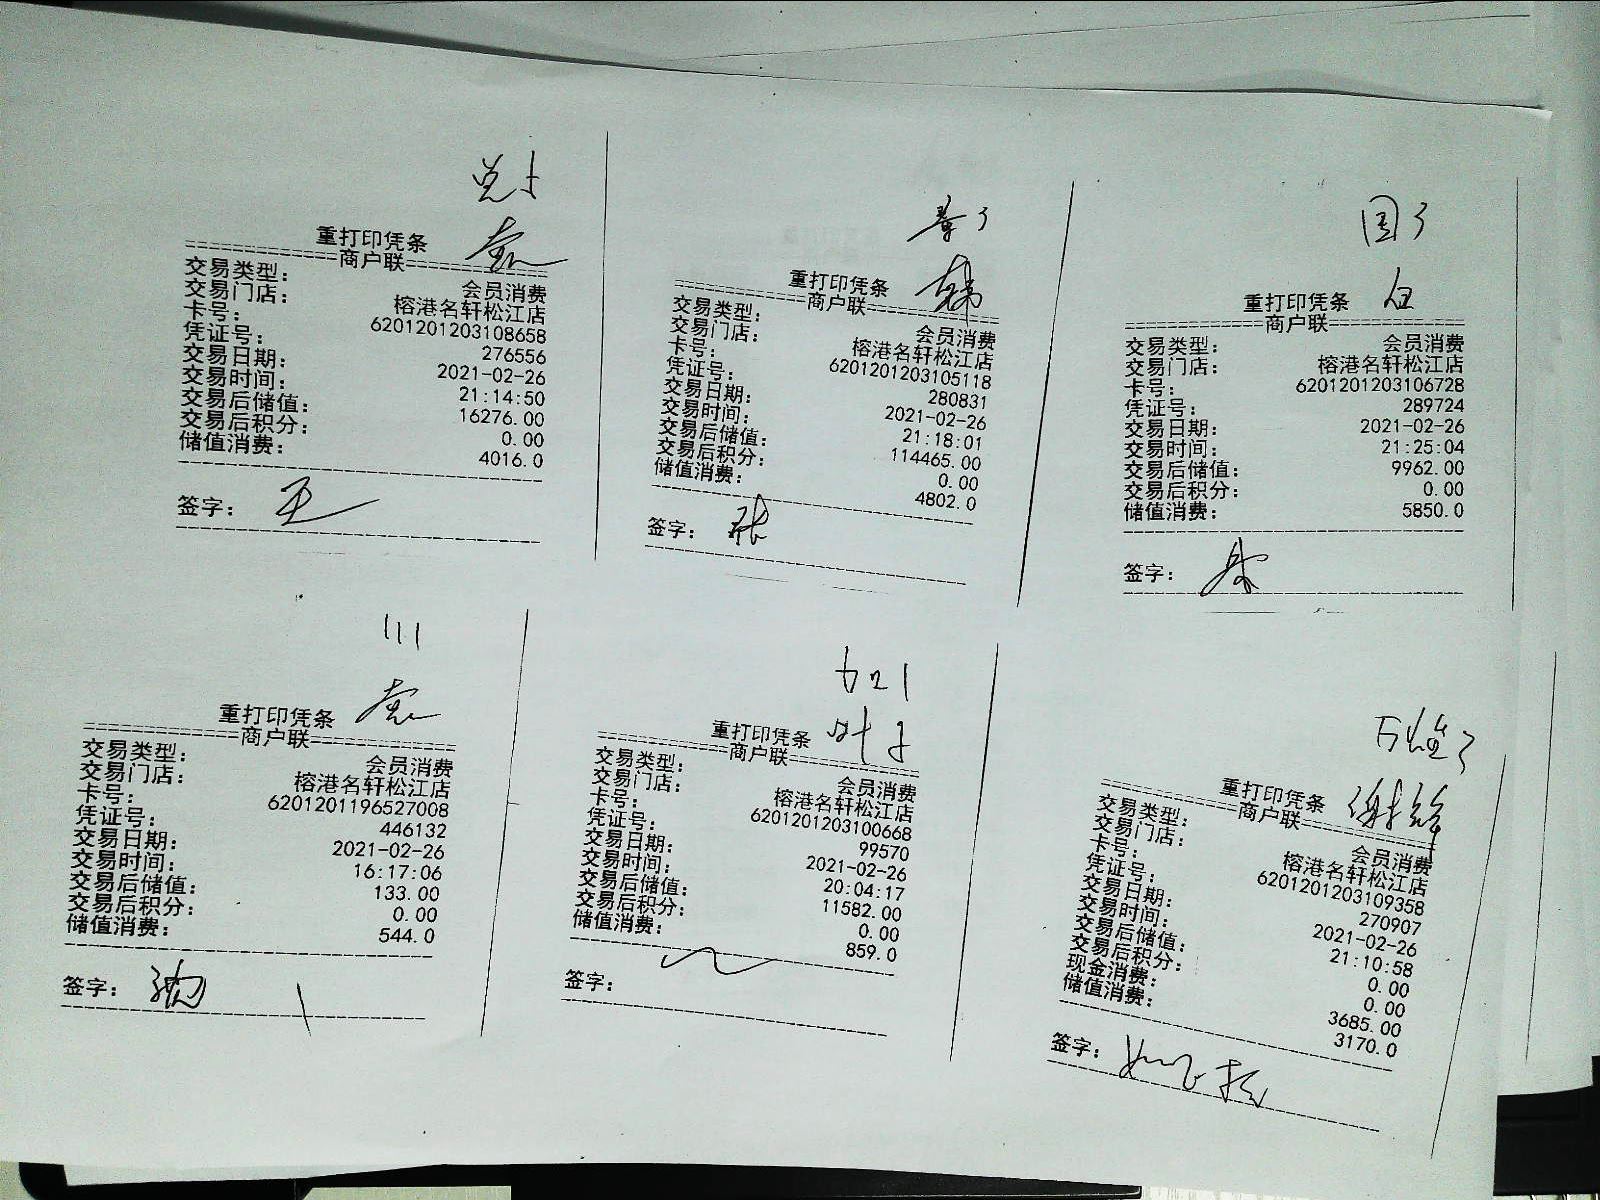 重打印凭条
商户联
交易类型： 会员消费
交易门店： 榕港名轩松江店
卡号： 6201201203108658
凭证号： 276556
交易日期： 2021-02-26
交易时间： 21:14:50
交易后储值： 16276.00
交易后积分： 0.00
储值消费： 4016.0
签字：
重打印凭条
商户联
交易类型： 会员消费
交易门店： 榕港名轩松江店
卡号： 6201201203105118
凭证号： 280831
交易日期： 2021-02-26
交易时间： 21:18:01
交易后储值： 114465.00
交易后积分： 0.00
储值消费： 4802.0
签字： 张
国3
白
重打印凭条
商户联
交易类型： 会员消费
交易门店： 榕港名轩松江店
卡号： 6201201203106728
凭证号： 289724
交易日期： 2021-02-26
交易时间： 21:25:04
交易后储值： 9962.00
交易后积分： 0.00
储值消费： 5850.0
签字：
111
重打印凭条
商户联
交易类型： 会员消费
交易门店： 榕港名轩松江店
卡号： 6201201196527008
凭证号： 446132
交易日期： 2021-02-26
交易时间： 16:17:06
交易后储值： 133.00
交易后积分： 0.00
储值消费： 544.0
签字：
重打印凭条
商户联
交易类型： 会员消费
交易门店： 榕港名轩松江店
卡号： 6201201203100668
凭证号： 99570
交易日期： 2021-02-26
交易时间： 20:04:17
交易后储值： 11582.00
交易后积分： 0.00
储值消费： 859.0
签字：
重打印凭条
商户联
交易类型： 会员消费
交易门店： 榕港名轩松江店
卡号： 6201201203109358
凭证号： 270907
交易日期： 2021-02-26
交易时间： 21:10:58
交易后储值： 0.00
交易后积分： 0.00
现金消费： 3685.00
储值消费： 3170.0
签字：